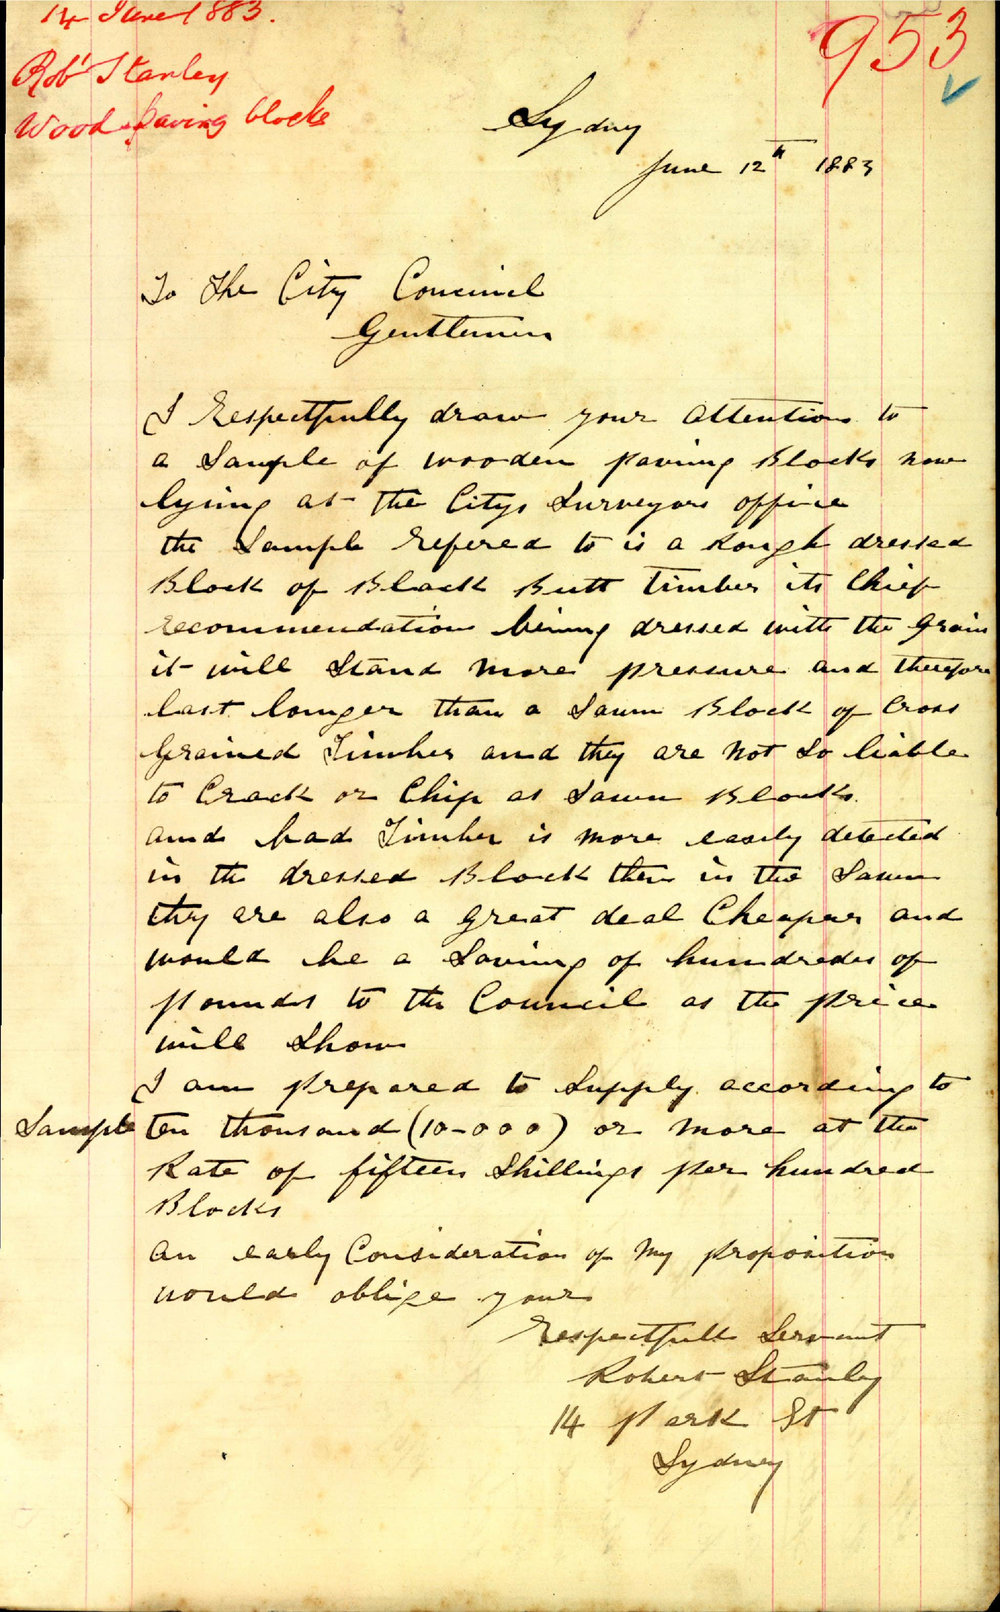 14 June 1883.
953
Robt Stanley
Wood paving blocks
Sydney
June 12th 1883
To the City Councinel
Gentlemen
I Respectfully draw your attention to
a Sample of wooden paving Blocks now
lying at the Citys Surveyors office
the Sample refered to is a Rough dressed
Block of Black Butt timber its Chief
recommendation bieng dressed with the Grain
it will Stand more pressure and therefore
last longer than a Sawn Block of Cross
Grained Timber and they are not so liable
to Crack or Chip as Sawn Blocks.
and bad Timber is more easily detected
in the dressed Block then in the Sawn
they are also a great deal Cheaper and
would be a Saving of hundredes of
pounds to the Council as the price
will Show
I am prepared to Supply according to
Sample ten thousand (10-000) or more at the
Rate of fifteen Shillings per hundred
Blocks
an early Consideration of my proposition
would oblige your
Respectfull Servant
Robert Stanley
14 Park St
Sydney